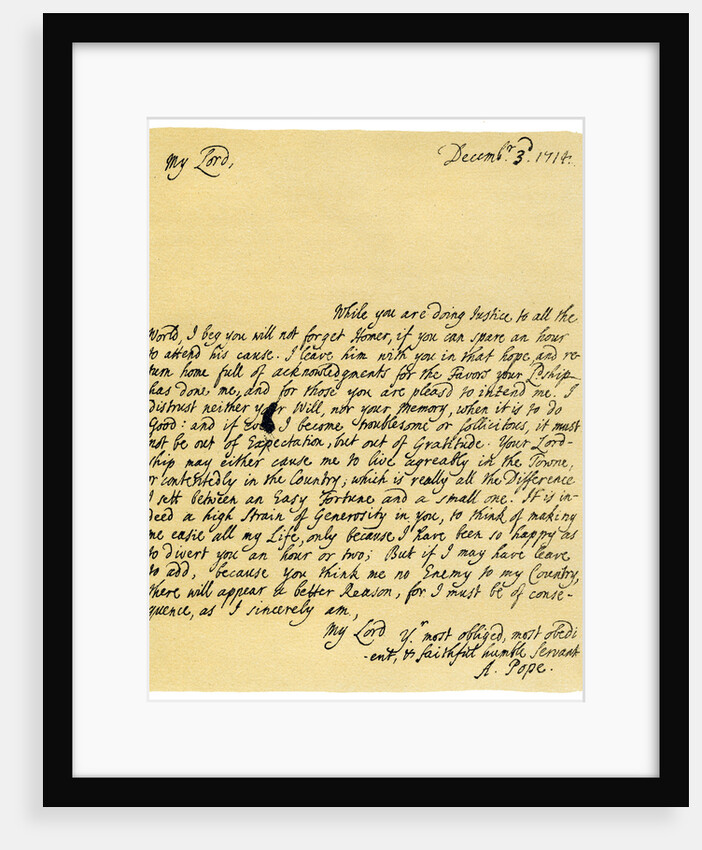 My Lord,
Decemb.r 3.d 1714.
While you are doing Justice to all the
World, I beg you will not forget Homer, if you can spare an hour
to attend his cause. I leave him with you in that hope, and re-
turn home full of acknowledgments for the Favors your Lp:ship
has done me, and for those you are pleasd to intend me. I
distrust neither your Will, nor your Memory, when it is to do
Good: and if ever I become troublesome or sollicitous, it must
not be out of Expectation, but out of Gratitude. Your Lord-
ship may either cause me to live agreably in the Towne,
or contentedly in the Country; which is really all the Difference
I sett between an Easy Fortune and a small one. It is in-
deed a high Strain of Generosity in you, to think of making
me easie all my Life, only because I have been so happy as
to divert you an hour or two; But if I may have leave
to add, because you think me no Enemy to my Country,
there will appear a better Reason, for I must be of conse-
quence, as I sincerely am,
My Lord Y.r most obliged, most obedi
-ent, & faithful humble Servant
A. Pope.